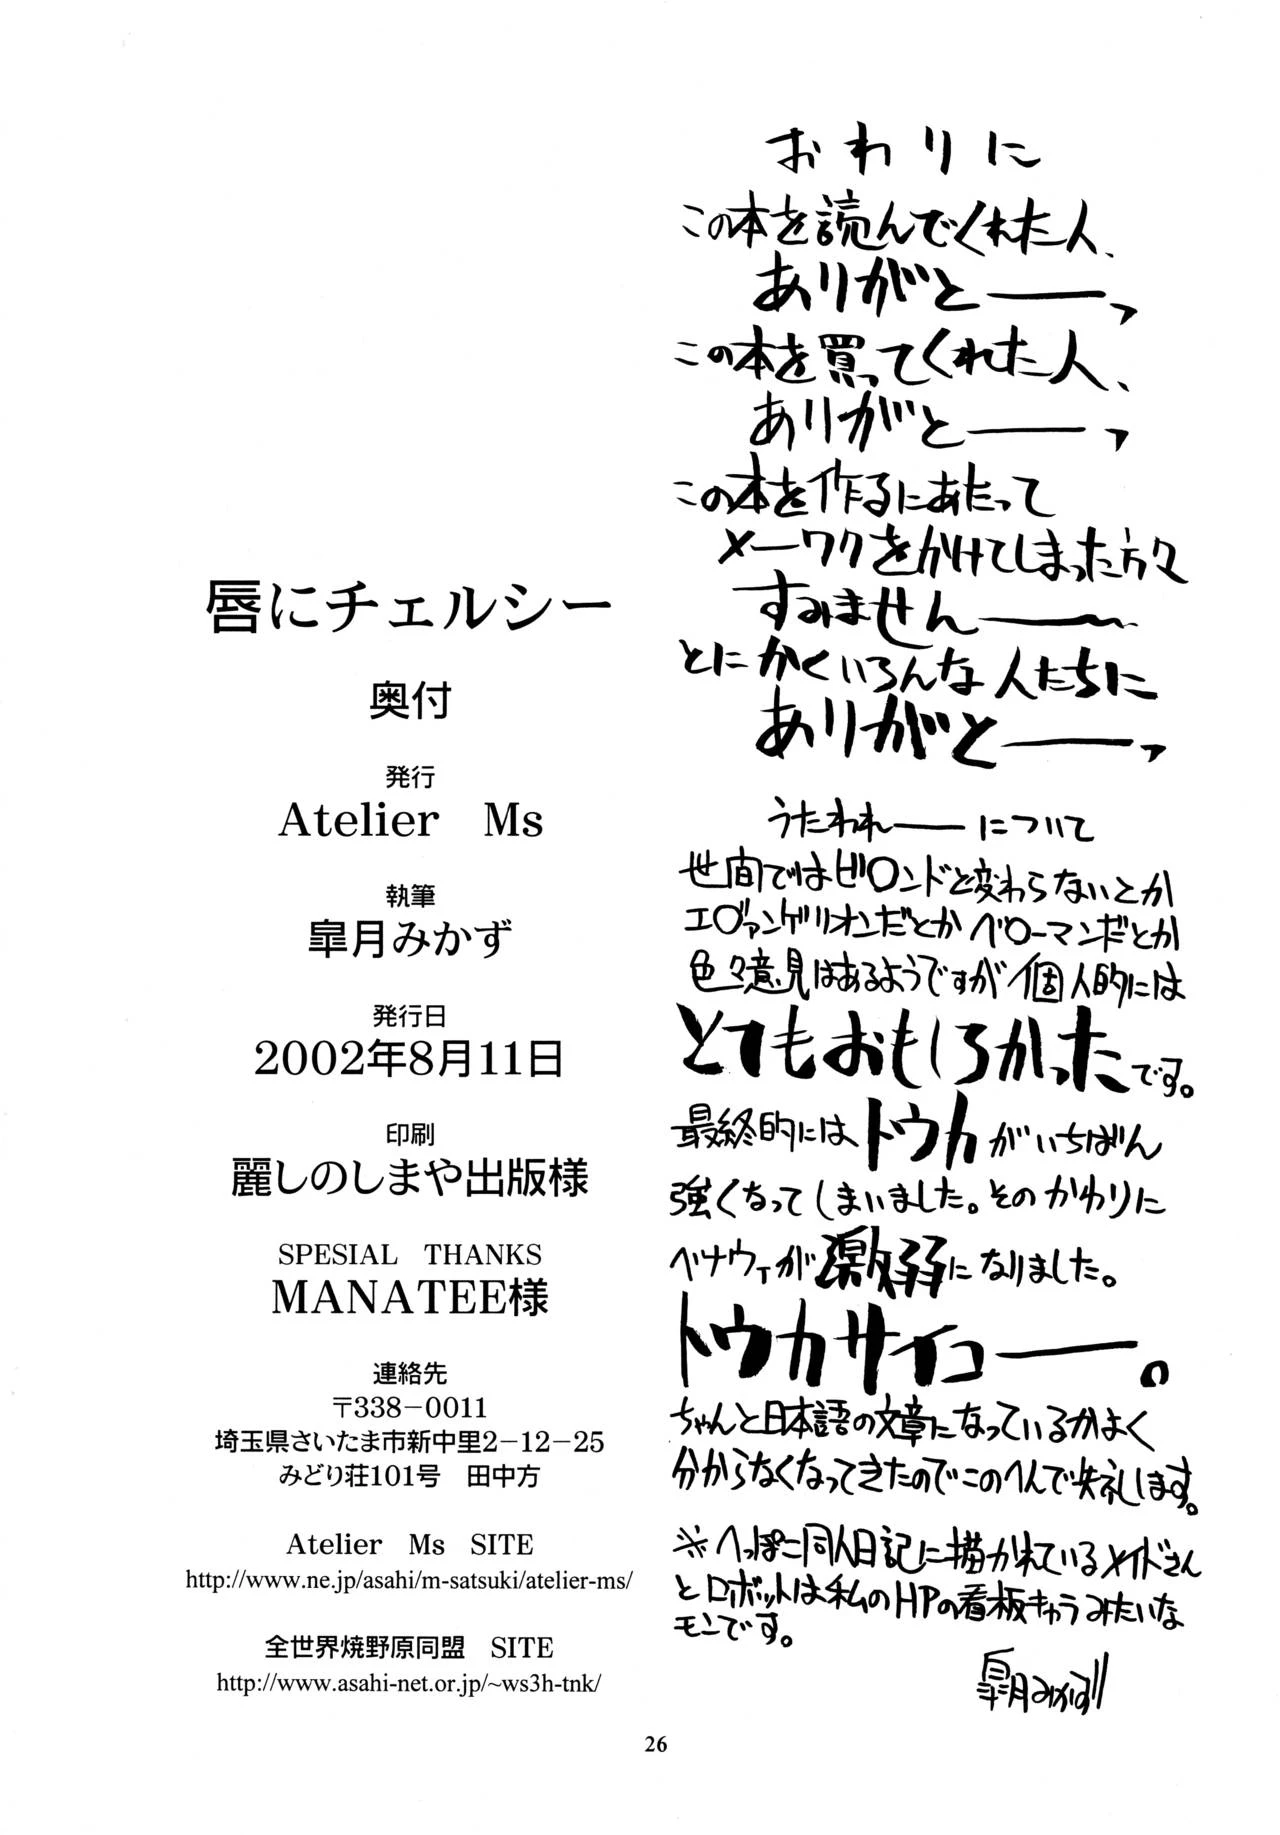 おわりに
この本を読んでくれた人、
ありがとーーっ
この本を買ってくれた人、
ありがとーーっ
この本を作るにあたって
メーワクをかけてしまった方々
すみませんーー〜
とにかくいろんな人たちに
ありがとーーっ
うたわれーーについて
世間ではビ〇ンドと変わらないとか
エ〇ァンゲリオンだとか ベ〇ーマンだとか
色々意見はあるようですが個人的には
とてもおもしろかったです。
最終的にはトウカがいちばん
強くなってしまいました。そのかわりに
ベナウィが激弱になりました。
トウカサイコーー。
ちゃんと日本語の文章になっているかよく
分からなくなってきたのでこのへんで失礼します。
※へっぽこ同人日記に描かれているメイドさん
とロボットは私のHPの看板キャラみたいな
モンです。
皐月みかず
唇にチェルシー
奥付
発行
Atelier Ms
執筆
皐月みかず
発行日
2002年8月11日
印刷
麗しのしまや出版様
SPESIAL THANKS
MANATEE様
連絡先
〒338−0011
埼玉県さいたま市新中里2−12−25
みどり荘101号 田中方
Atelier Ms SITE
http://www.ne.jp/asahi/m-satsuki/atelier-ms/
全世界焼野原同盟 SITE
http://www.asahi-net.or.jp/~ws3h-tnk/
26